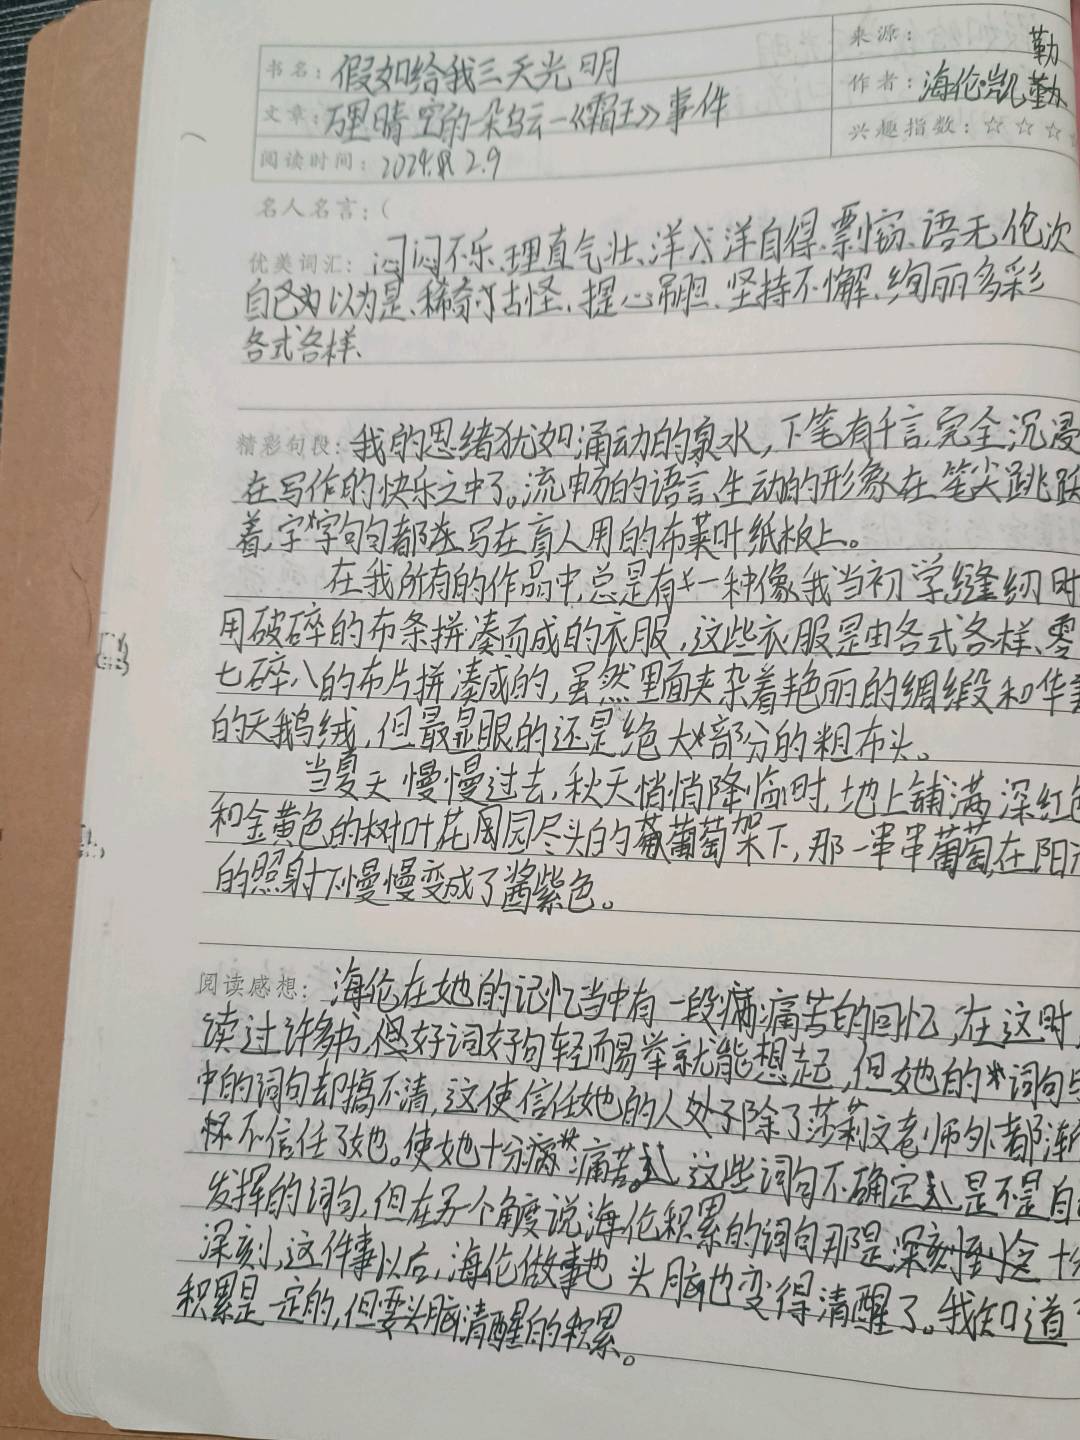 书名：假如给我三天光明
来源：
文章：万里晴空的一朵乌云—《霜王》事件
作者：海伦·凯勒
勤
阅读时间：2024. 2.9
兴趣指数：☆☆☆
名人名言：(
优美词汇：闷闷不乐、理直气壮、洋洋自得、剽窃、语无伦次
自已为以为是、稀奇古怪、提心吊胆、坚持不懈、绚丽多彩
各式各样、
精彩句段：我的思绪犹如涌动的泉水，下笔有千言，完全沉浸
在写作的快乐之中了。流畅的语言、生动的形象在笔尖跳跃
着，字字句句都写在盲人用的布莱叶纸板上。
在我所有的作品中，总是有一种像我当初学缝纫时
用破碎的布条拼凑而成的衣服，这些衣服是由各式各样、零
七碎八的布片拼凑成的，虽然里面夹杂着艳丽的绸缎和华
的天鹅绒，但最显眼的还是绝大部分的粗布头。
当夏天慢慢过去，秋天悄悄降临时，地上铺满深红色
和金黄色的树叶，花园尽头的葡萄架下，那一串串葡萄，在阳
的照射下慢慢变成了酱紫色。
阅读感想：海伦在她的记忆当中有一段痛苦的回忆，在这时
读过许多书，但好词好句轻而易举就能想起，但她的词句与
中的词句却搞不清，这使信任她的人处了除了莎莉文老师外都渐
怀不信任了她。使她十分痛苦。这些词句不确定是不是自
发挥的词句，但在另一个角度说海伦积累的词句那是深刻到
深刻，这件事以后，海伦做事也头脑也变得清醒了。我知道
积累是一定的，但要头脑清醒的积累。